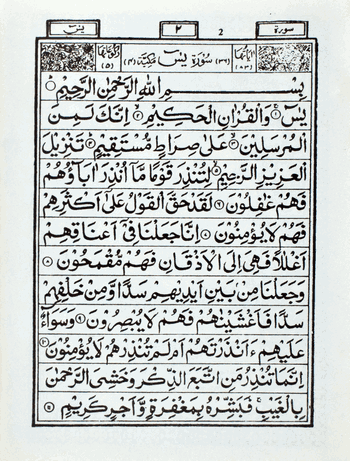 سورة 2 ٢ يٰسٓ
اٰيَاتُهَا (٨٣) (٣٦) سُوْرَةُ يٰسٓ مَكِّيَّةٌ (٤) رُكُوْعَاتُهَا (٥)
بِسْمِ اللهِ الرَّحْمٰنِ الرَّحِيْمِ
يٰسٓ ۚ وَالْقُرْاٰنِ الْحَكِيْمِ ۙ اِنَّكَ لَمِنَ
الْمُرْسَلِيْنَ ۙ عَلٰى صِرَاطٍ مُّسْتَقِيْمٍ ؕ تَنْزِيْلَ
الْعَزِيْزِ الرَّحِيْمِ ۙ لِتُنْذِرَ قَوْمًا مَّآ اُنْذِرَ اٰبَآؤُهُمْ
فَهُمْ غٰفِلُوْنَ ٦ لَقَدْ حَقَّ الْقَوْلُ عَلٰٓى اَكْثَرِهِمْ
فَهُمْ لَا يُؤْمِنُوْنَ ٧ اِنَّا جَعَلْنَا فِيْٓ اَعْنَاقِهِمْ
اَغْلٰلًا فَهِيَ اِلَى الْاَذْقَانِ فَهُمْ مُّقْمَحُوْنَ ٨
وَجَعَلْنَا مِنْۢ بَيْنِ اَيْدِيْهِمْ سَدًّا وَّمِنْ خَلْفِهِمْ
سَدًّا فَاَغْشَيْنٰهُمْ فَهُمْ لَا يُبْصِرُوْنَ ٩ وَسَوَآءٌ
عَلَيْهِمْ ءَاَنْذَرْتَهُمْ اَمْ لَمْ تُنْذِرْهُمْ لَا يُؤْمِنُوْنَ ١٠
اِنَّمَا تُنْذِرُ مَنِ اتَّبَعَ الذِّكْرَ وَخَشِيَ الرَّحْمٰنَ
بِالْغَيْبِ ۚ فَبَشِّرْهُ بِمَغْفِرَةٍ وَّاَجْرٍ كَرِيْمٍ ١١